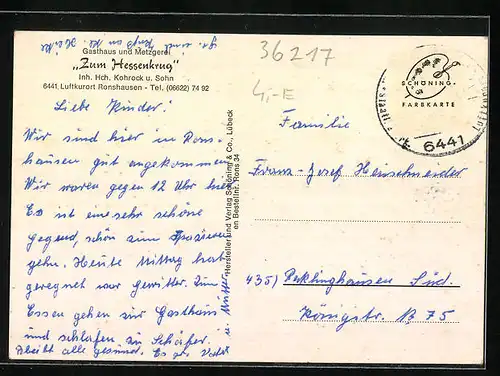 gr. und Kuß an
Gasthaus und Metzgerei
„Zum Hessenkrug"
Inh. Hch. Kohrock u. Sohn
6441 Luftkurort Ronshausen - Tel. (06622) 74 92
36217
4,-E
SCHÖNING
FARBKARTE
6441
Liebe Kinder!
Wir sind hier in Rons-
hausen gut angekommen
Wir waren gegen 12 Uhr hier
Es ist eine sehr schöne
Gegend, schön zum spazieren
gehn. Heute Mittag hat
geregnet war Gewitter. Zum
Essen gehen zur Gasthaus
und schlafen zu Schäfer.
Bleibt alle gesund. Es gr. Vater
u. Mutter
Hersteller und Verlag Schöning & Co., Lübeck
an Bestellnr. Rons 34
Familie
Franz-Josef
435) Recklinghausen Süd.
Königstr. B 75